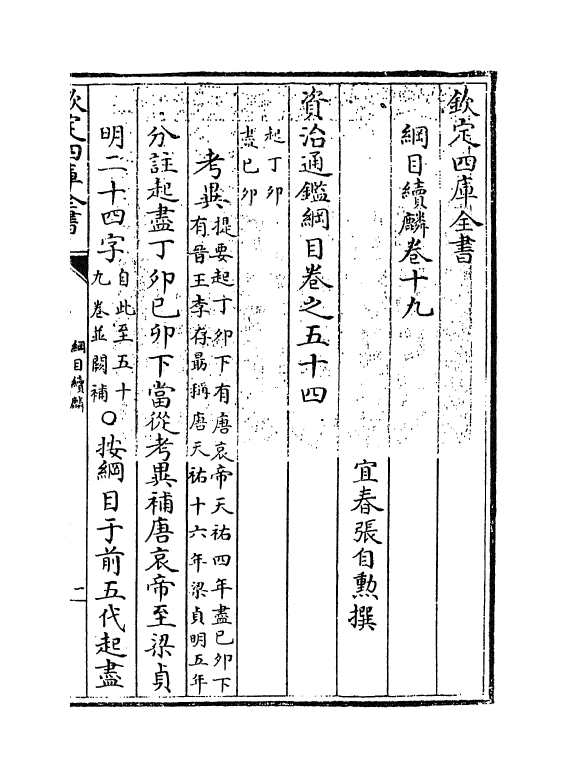 欽定四庫全書
綱目續麟卷十九
宜春張自勲撰
資治通鑑綱目卷之五十四
起丁卯
盡已卯
考異
提要起丁卯下有唐哀帝天祐四年盡已卯下
有晉王李存勗稱唐天祐十六年梁貞明五年
分註起盡丁卯已卯下當從考異補唐哀帝至梁貞
明二十四字
自此至五十
九卷並闕補
○按綱目于前五代起盡
欽定四庫全書
綱目續麟